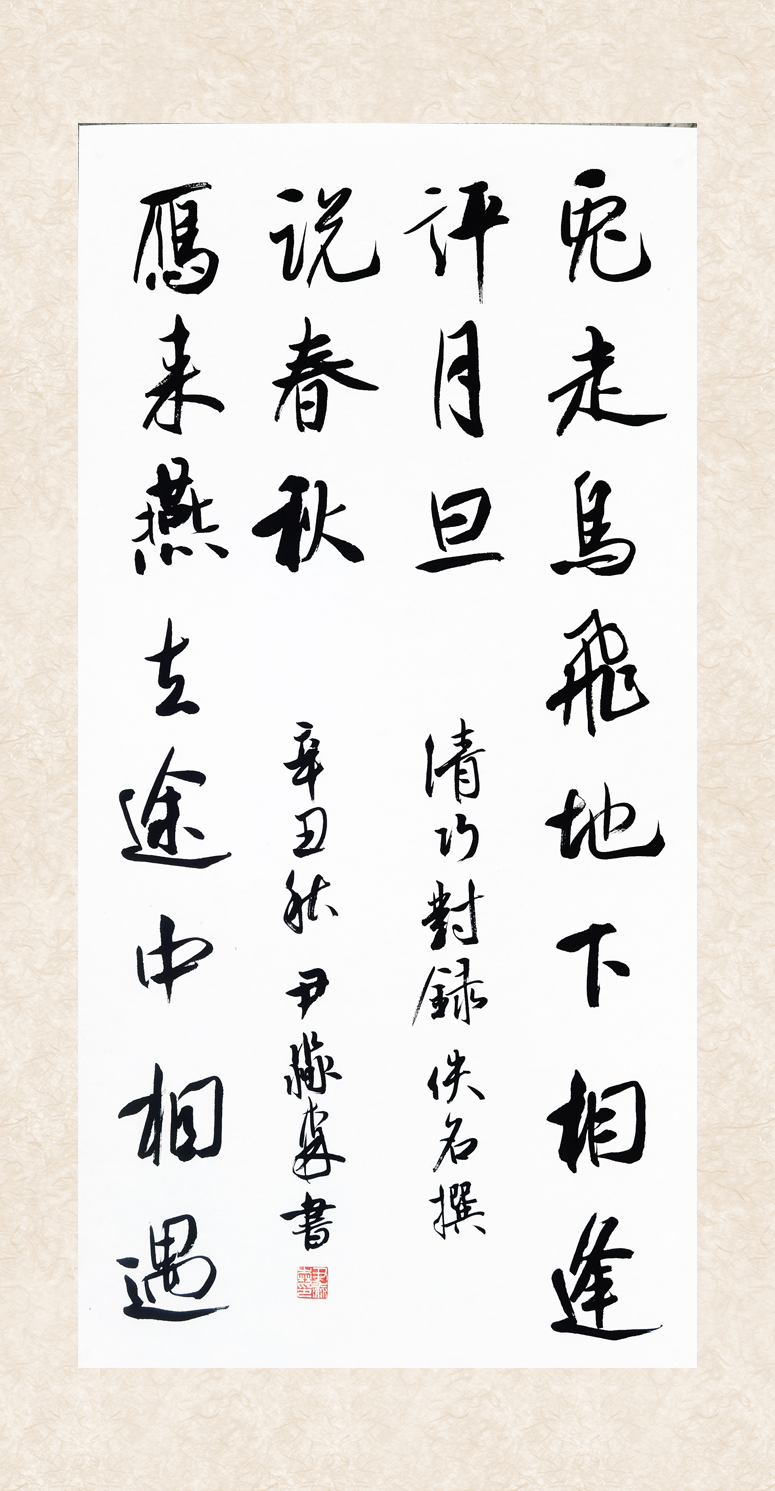 兔走烏飛地下相逢
评月旦
清巧對録 佚名撰
说春秋
辛丑秋 尹 書
鴈来燕去途中相遇